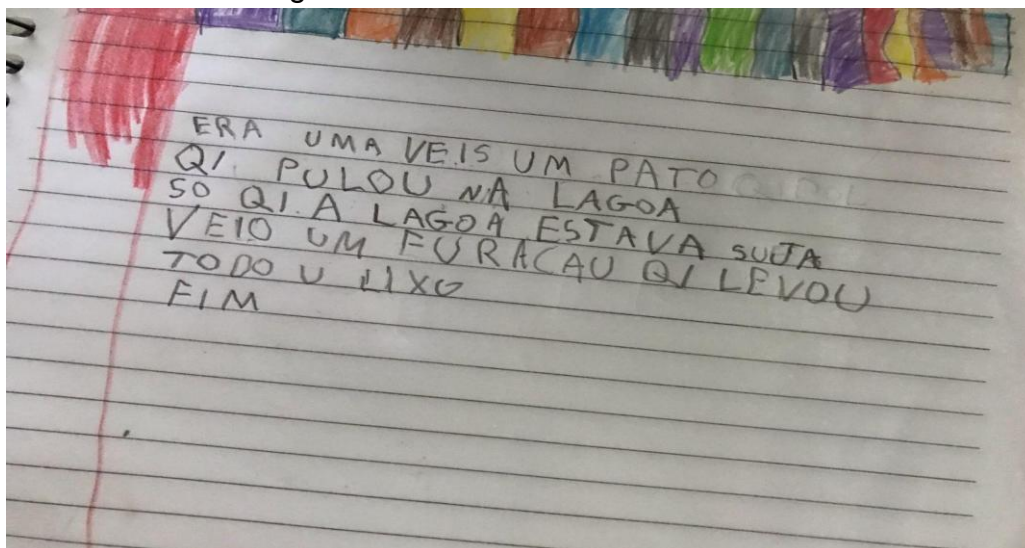 ERA UMA VEIS UM PATO
QI PULOU NA LAGOA
SO QI A LAGOA ESTAVA SUJA
VEIO UM FURACAU QI LEVOU
TODO U LIXO
FIM